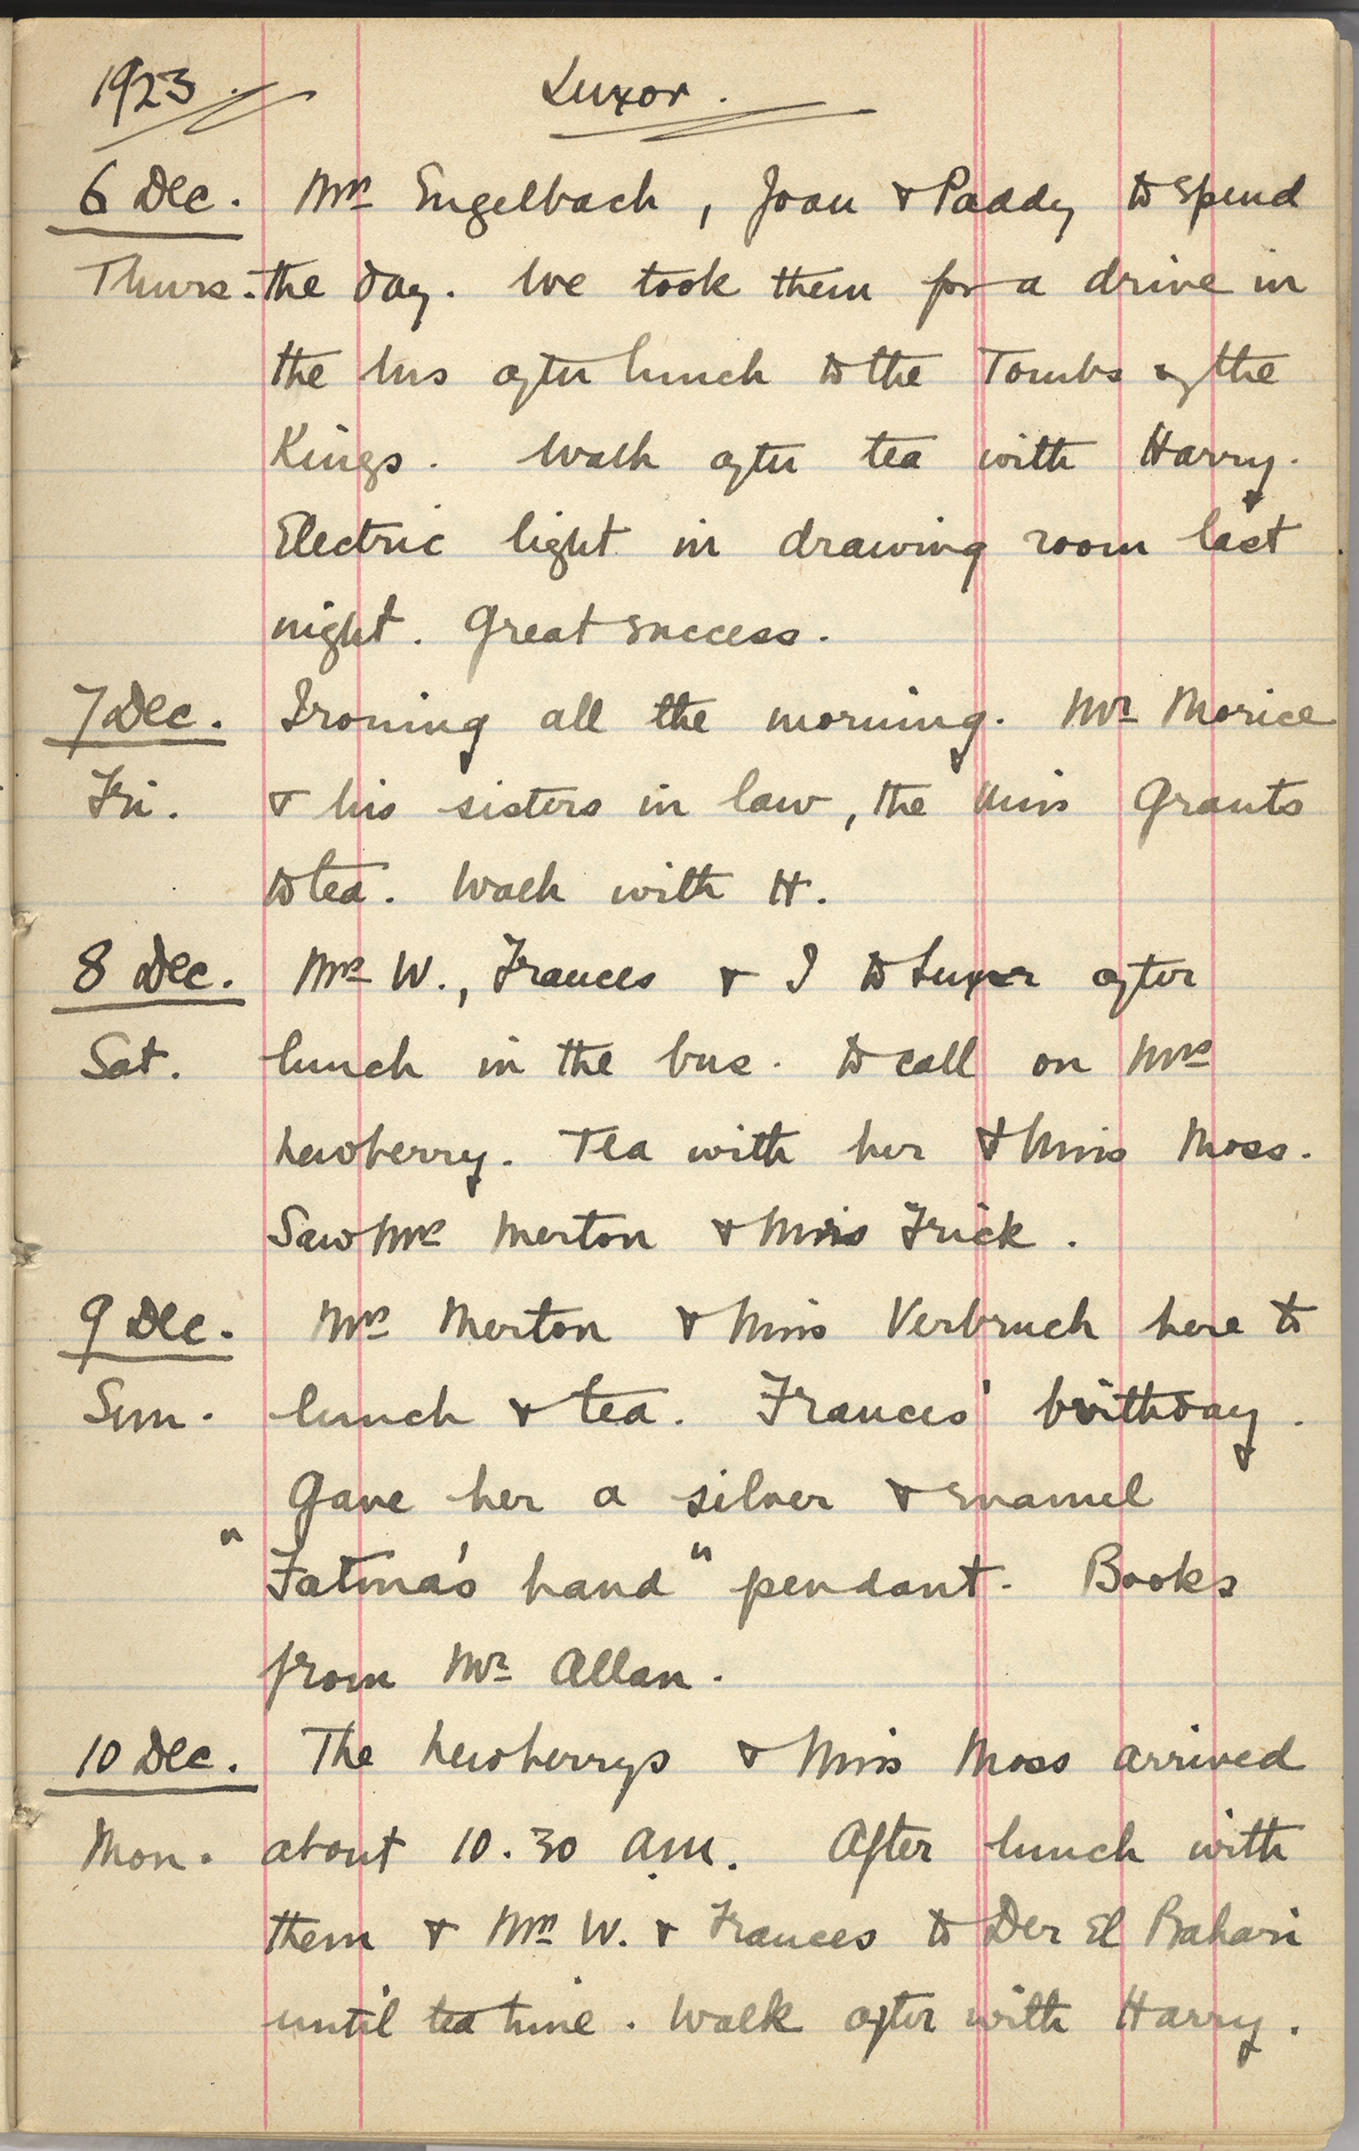 1923. Luxor.
6 Dec. Mrs Engelbach, Joan & Paddy to spend
Thurs. the day. We took them for a drive in
the bus after lunch to the Tombs of the
Kings. Walk after tea with Harry.
Electric light in drawing room last
night. Great success.
7 Dec. Ironing all the morning. Mr Morice
Fri. & his sisters in law, the Miss Grants
to tea. Walk with H.
8 Dec. Mrs W., Frances & I to Luxor after
Sat. lunch in the bus. to call on Mrs
Newberry. Tea with her & Miss Moss.
Saw Mrs Merton & Miss Frick.
9 Dec. Mrs Merton & Miss Verbruch here to
Sun. lunch & tea. Frances' birthday.
Gave her a silver & enamel
"Fatma's hand" pendant. Books
from Mr Allan.
10 Dec. The Newberrys & Miss Moss arrived
Mon. about 10.30 am. After lunch with
them & Mrs W. & Frances to Der El Bahari
until tea time. Walk after with Harry.